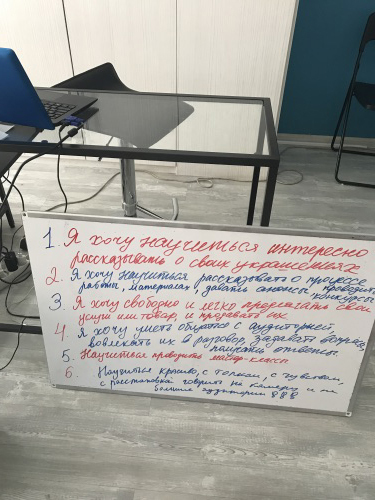 1. Я хочу научиться интересно
рассказывать о своих украшениях
2. Я хочу научиться рассказывать о процессе
работы, материалах, давать анонсы, проводить
конкурсы
3. Я хочу свободно и легко предлагать свои
услуги или товар, и продавать их.
4. Я хочу уметь общаться с аудиторией,
вовлекать их в разговор, задавать вопросы,
получать ответы.
5. Научиться проводить мастер-класс
6. Научиться красиво, с толком, с чувством,
с расстановкой говорить на камеру и на
большие аудитории